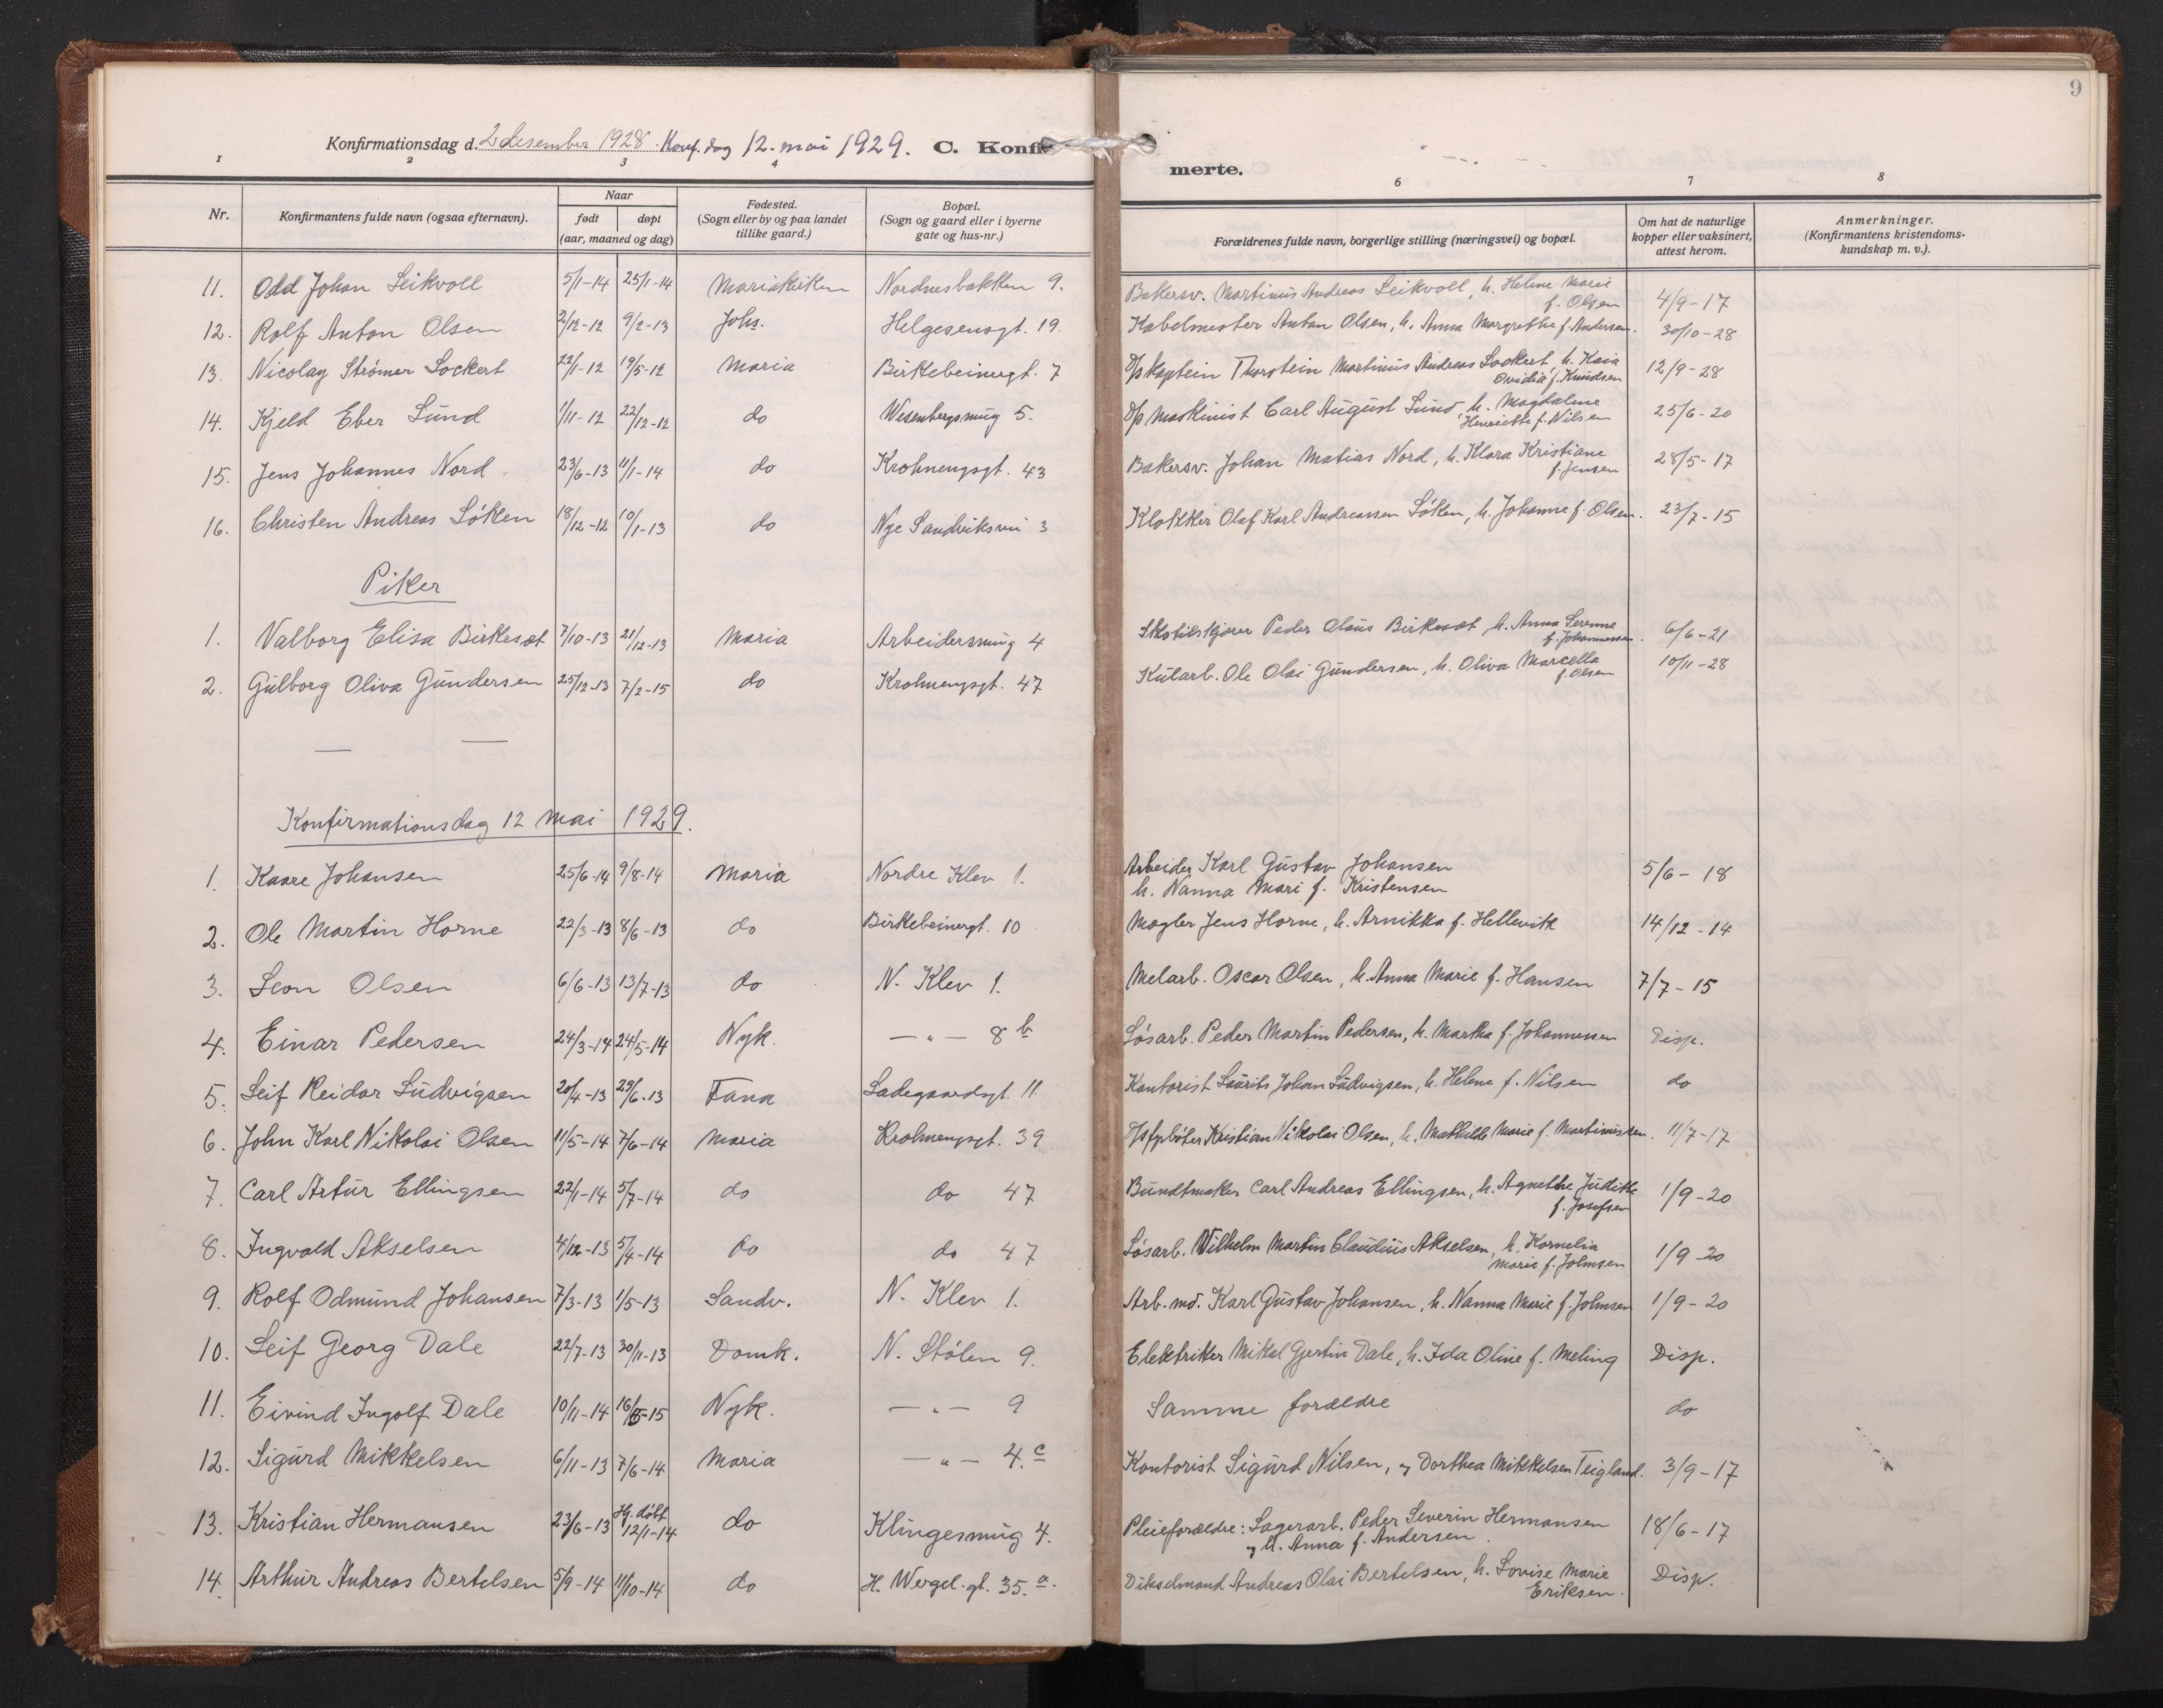 9
Konfirmationsdag d. 2 desember 1928. Konf. dag 12. mai 1929. C. Konfir-
merte.
1 2 3 4 6 7 8
Nr. Konfirmantens fulde navn (ogsaa efternavn). Naar født døpt (aar, maaned og dag) Fødested. (Sogn eller by og paa landet tillike gaard.) Bopæl. (Sogn og gaard eller i byerne gate og hus-nr.) Forældrenes fulde navn, borgerlige stilling (næringsvei) og bopæl. Om hat de naturlige kopper eller vaksinert, attest herom. Anmerkninger. (Konfirmantens kristendoms-kundskap m. v.).
11. Odd Johan Leikvoll 5/1-14 25/1-14 Mariakirken Nordnesbakken 9. Bakersv. Martinus Andreas Leikvoll, h. Helene Marie f. Olsen 4/9-17
12. Rolf Anton Olsen 2/12-12 9/2-13 Johs. Helgesensgt. 19. Kabelmester Anton Olsen, h. Anna Margrethe f. Andersen. 30/10-28
13. Nicolay Strømer Lockert 22/1-12 19/5-12 Maria Birkebeinergt. 7 D/p kaptein Thorstein Martinus Andreas Lockert, h. Kaia Ovidia f. Knudsen 12/9-28
14. Kjeld Eber Lund 1/11-12 22/12-12 do Wesenbergsmug 5. D/p Maskinist Carl August Lund, h. Magdalene Henriette f. Nilsen 25/6-20
15. Jens Johannes Nord 23/6-13 11/1-14 do Krohnengsgt. 43 Bakersv. Johan Matias Nord, h. Klara Kristiane f. Jensen 28/5-17
16. Christen Andreas Løken 18/12-12 10/1-13 do Nye Sandviksvei 3 Klokker Olaf Karl Andreassen Løken, h. Johanne f. Olsen. 23/7-15
Piker
1. Valborg Elisa Birkesæt 7/10-13 21/12-13 Maria Arbeidersmug 4 Skotilskjærer Peder Olaus Birkesæt, h. Anna Serenne f. Johannessen. 6/6-21
2. Gulborg Oliva Gundersen 25/12-13 7/2-15 do Krohnengsgt. 47 Kularb. Ole Olai Gundersen, h. Oliva Marcella f. Olsen 10/11-28
— —
Konfirmationsdag 12 Mai 1929.
1. Kaare Johansen 25/6-14 9/8-14 Maria Nordre Klev 1. Arbeider Karl Gustav Johansen h. Nanna Mari f. Kristensen 5/6-18
2. Ole Martin Horne 22/3-13 8/6-13 do Birkebeinergt. 10 Mægler Jens Horne, h. Arnikka f. Hellevik 14/12-14
3. Leon Olsen 6/6-13 13/7-13 do N. Klev 1. Melarb. Oscar Olsen, h. Anna Marie f. Hansen 7/7-15
4. Einar Pedersen 24/3-14 24/5-14 Nyk. —"— 8 b Løsarb. Peder Martin Pedersen, h. Martha f. Johannessen Disp.
5. Leif Reidar Ludvigsen 20/4-13 29/6-13 Fana Ladegaardsgt. 11. Kontorist Laurits Johan Ludvigsen, h. Helene f. Nilsen do
6. John Karl Nikolai Olsen 11/5-14 7/6-14 Maria Krohnengsgt. 39 Kristian Nikolai Olsen, h. Mathilde Marie f. Martinussen. 11/7-17
7. Carl Artur Ellingsen 22/1-14 5/7-14 do do 47 Bundtmaker Carl Andreas Ellingsen, h. Agnethe Judithe f. Josefsen 1/9-20
8. Ingvald Akselsen 4/12-13 5/4-14 do do 47 Løsarb. Vilhelm Martin Claudius Akselsen, h. Kornelia Marie f. Johnsen 1/9-20
9. Rolf Odmund Johansen 7/3-13 1/5-13 Sandv. N. Klev 1. Arb. md. Karl Gustav Johansen, h. Nanna Marie f. Johnsen 1/9-20
10. Leif Georg Dale 22/7-13 30/11-13 Domk. N. Stølen 9. Elektriker Mikal Gjertin Dale, h. Ida Oline f. Meling Disp.
11. Eivind Ingolf Dale 10/11-14 16/5-15 Nyk. —"— 9 Samme forældre do
12. Sigurd Mikkelsen 6/11-13 7/6-14 Maria —"— 4. c Kontorist Sigurd Nilsen, og Dorthea Mikkelsen Teigland. 3/9-17
13. Kristian Hermansen 23/6-13 Hj. døbt 12/1-14 do Klingesmug 4. Pleieforældre: Lagerarb. Peder Severin Hermansen og h. Anna f. Andersen. 18/6-17
14. Arthur Andreas Bertelsen 5/9-14 11/10-14 do H. Wergel.gt. 35. a. Dikselmand Andreas Olai Bertelsen, h. Lovise Marie Eriksen. Disp.